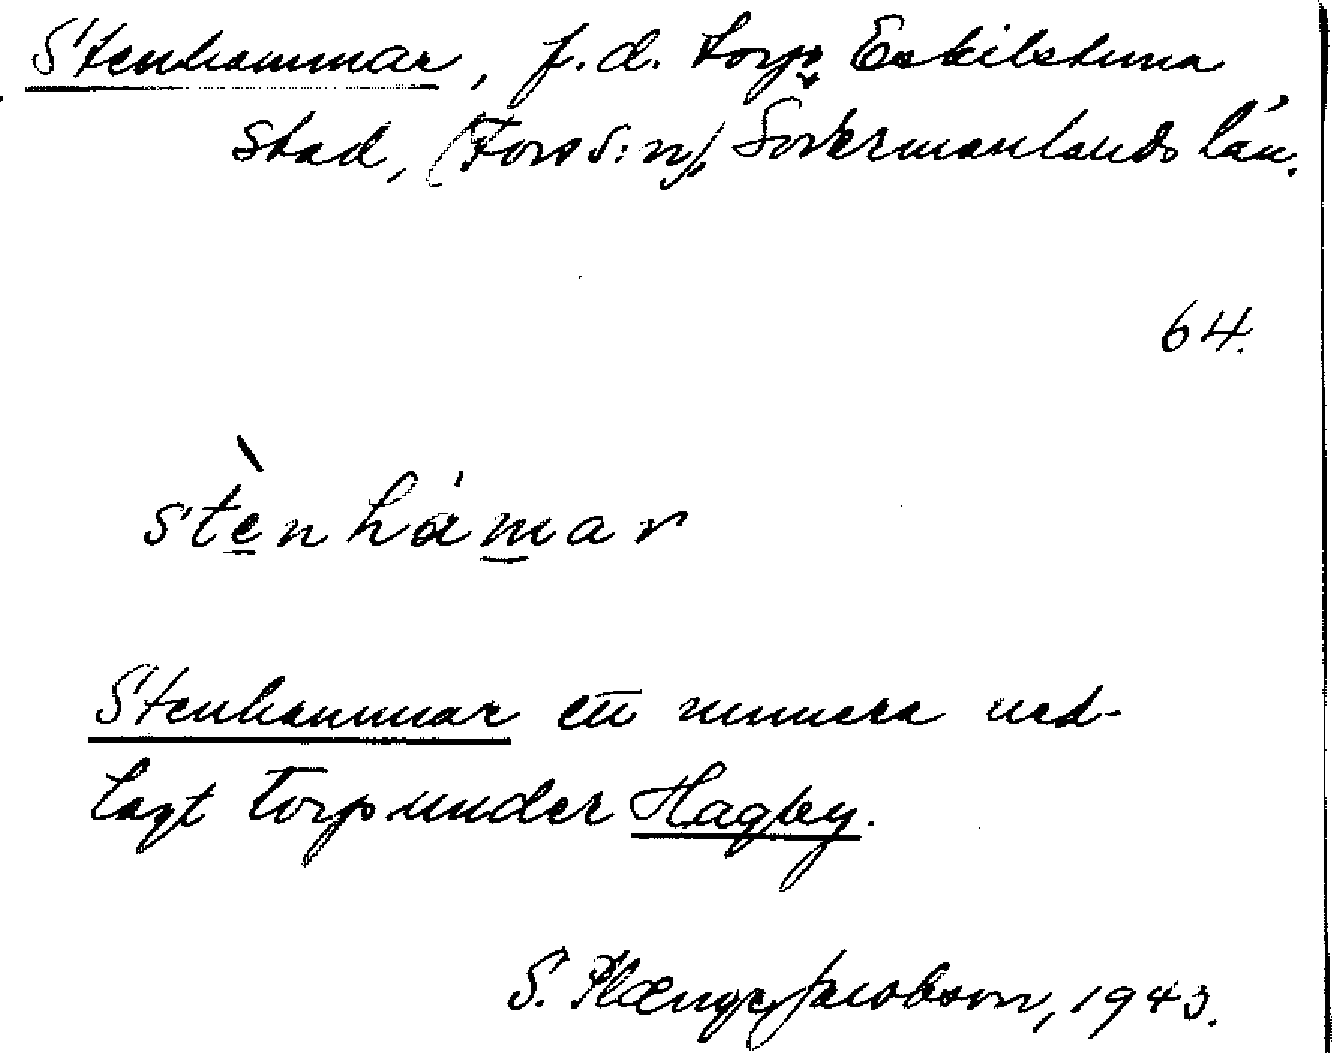 Stenhammar, f.d. torp, Eskilstuna
stad, (Fors s:n), Södermanlands län.
64.
stènhámar
Stenhammar ett numera ned-
lagt torp under Hagby.
S. Plænge Jacobson, 1943.